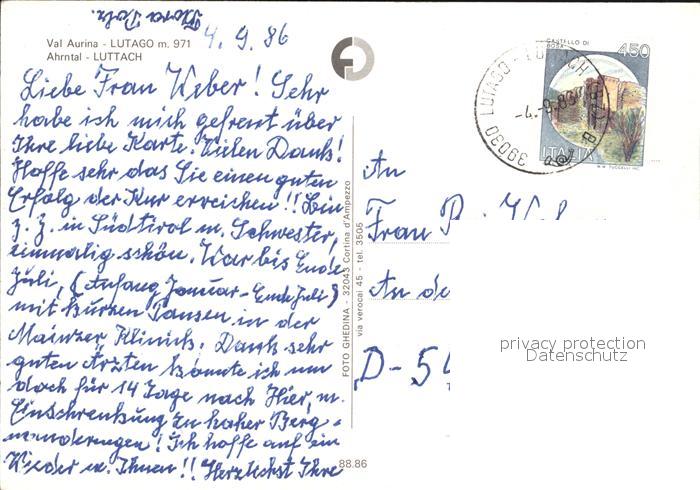 Val Aurina - LUTAGO m. 971
Ahrntal - LUTTACH
4.9.86
Liebe Frau Weber! Sehr
habe ich mich gefreut über
Ihre liebe Karte. Vielen Dank!
Hoffe sehr das Sie einen guten
Erfolg der Kur erreichen!! Bin
z. Z. in Südtirol m. Schwester,
einmalig schön. War bis Ende
Juli, (Anfang Januar - Ende Juli)
mit kurzen Pausen in der
Mainzer Klinick. Dank sehr
guten Ärzten konnte ich nun
doch für 14 Tage nach Hier, m.
Einschrenkung zu hoher Berg-
wanderungen! Ich hoffe auf ein
Wieder m. Ihnen!! Herzlichst Ihre
Flora
FOTO GHEDINA - 32043 Cortina d'Ampezzo
via verocai 45 - tel. 3505
88.86
CASTELLO DI
450
ITALIA
39030 LUTAGO - LUTTACH
-4.-9.86
An
Frau
An de
D-54
privacy protection
Datenschutz